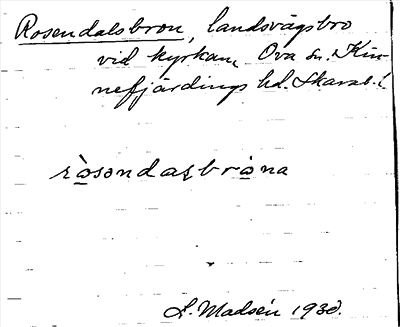 Rosendalsbron, landsvägsbro
vid kyrkan, Ova sn. Kin-
nefjärdings hd. Skarab. l.
ròsondasbròna
S. Madsén 1930.